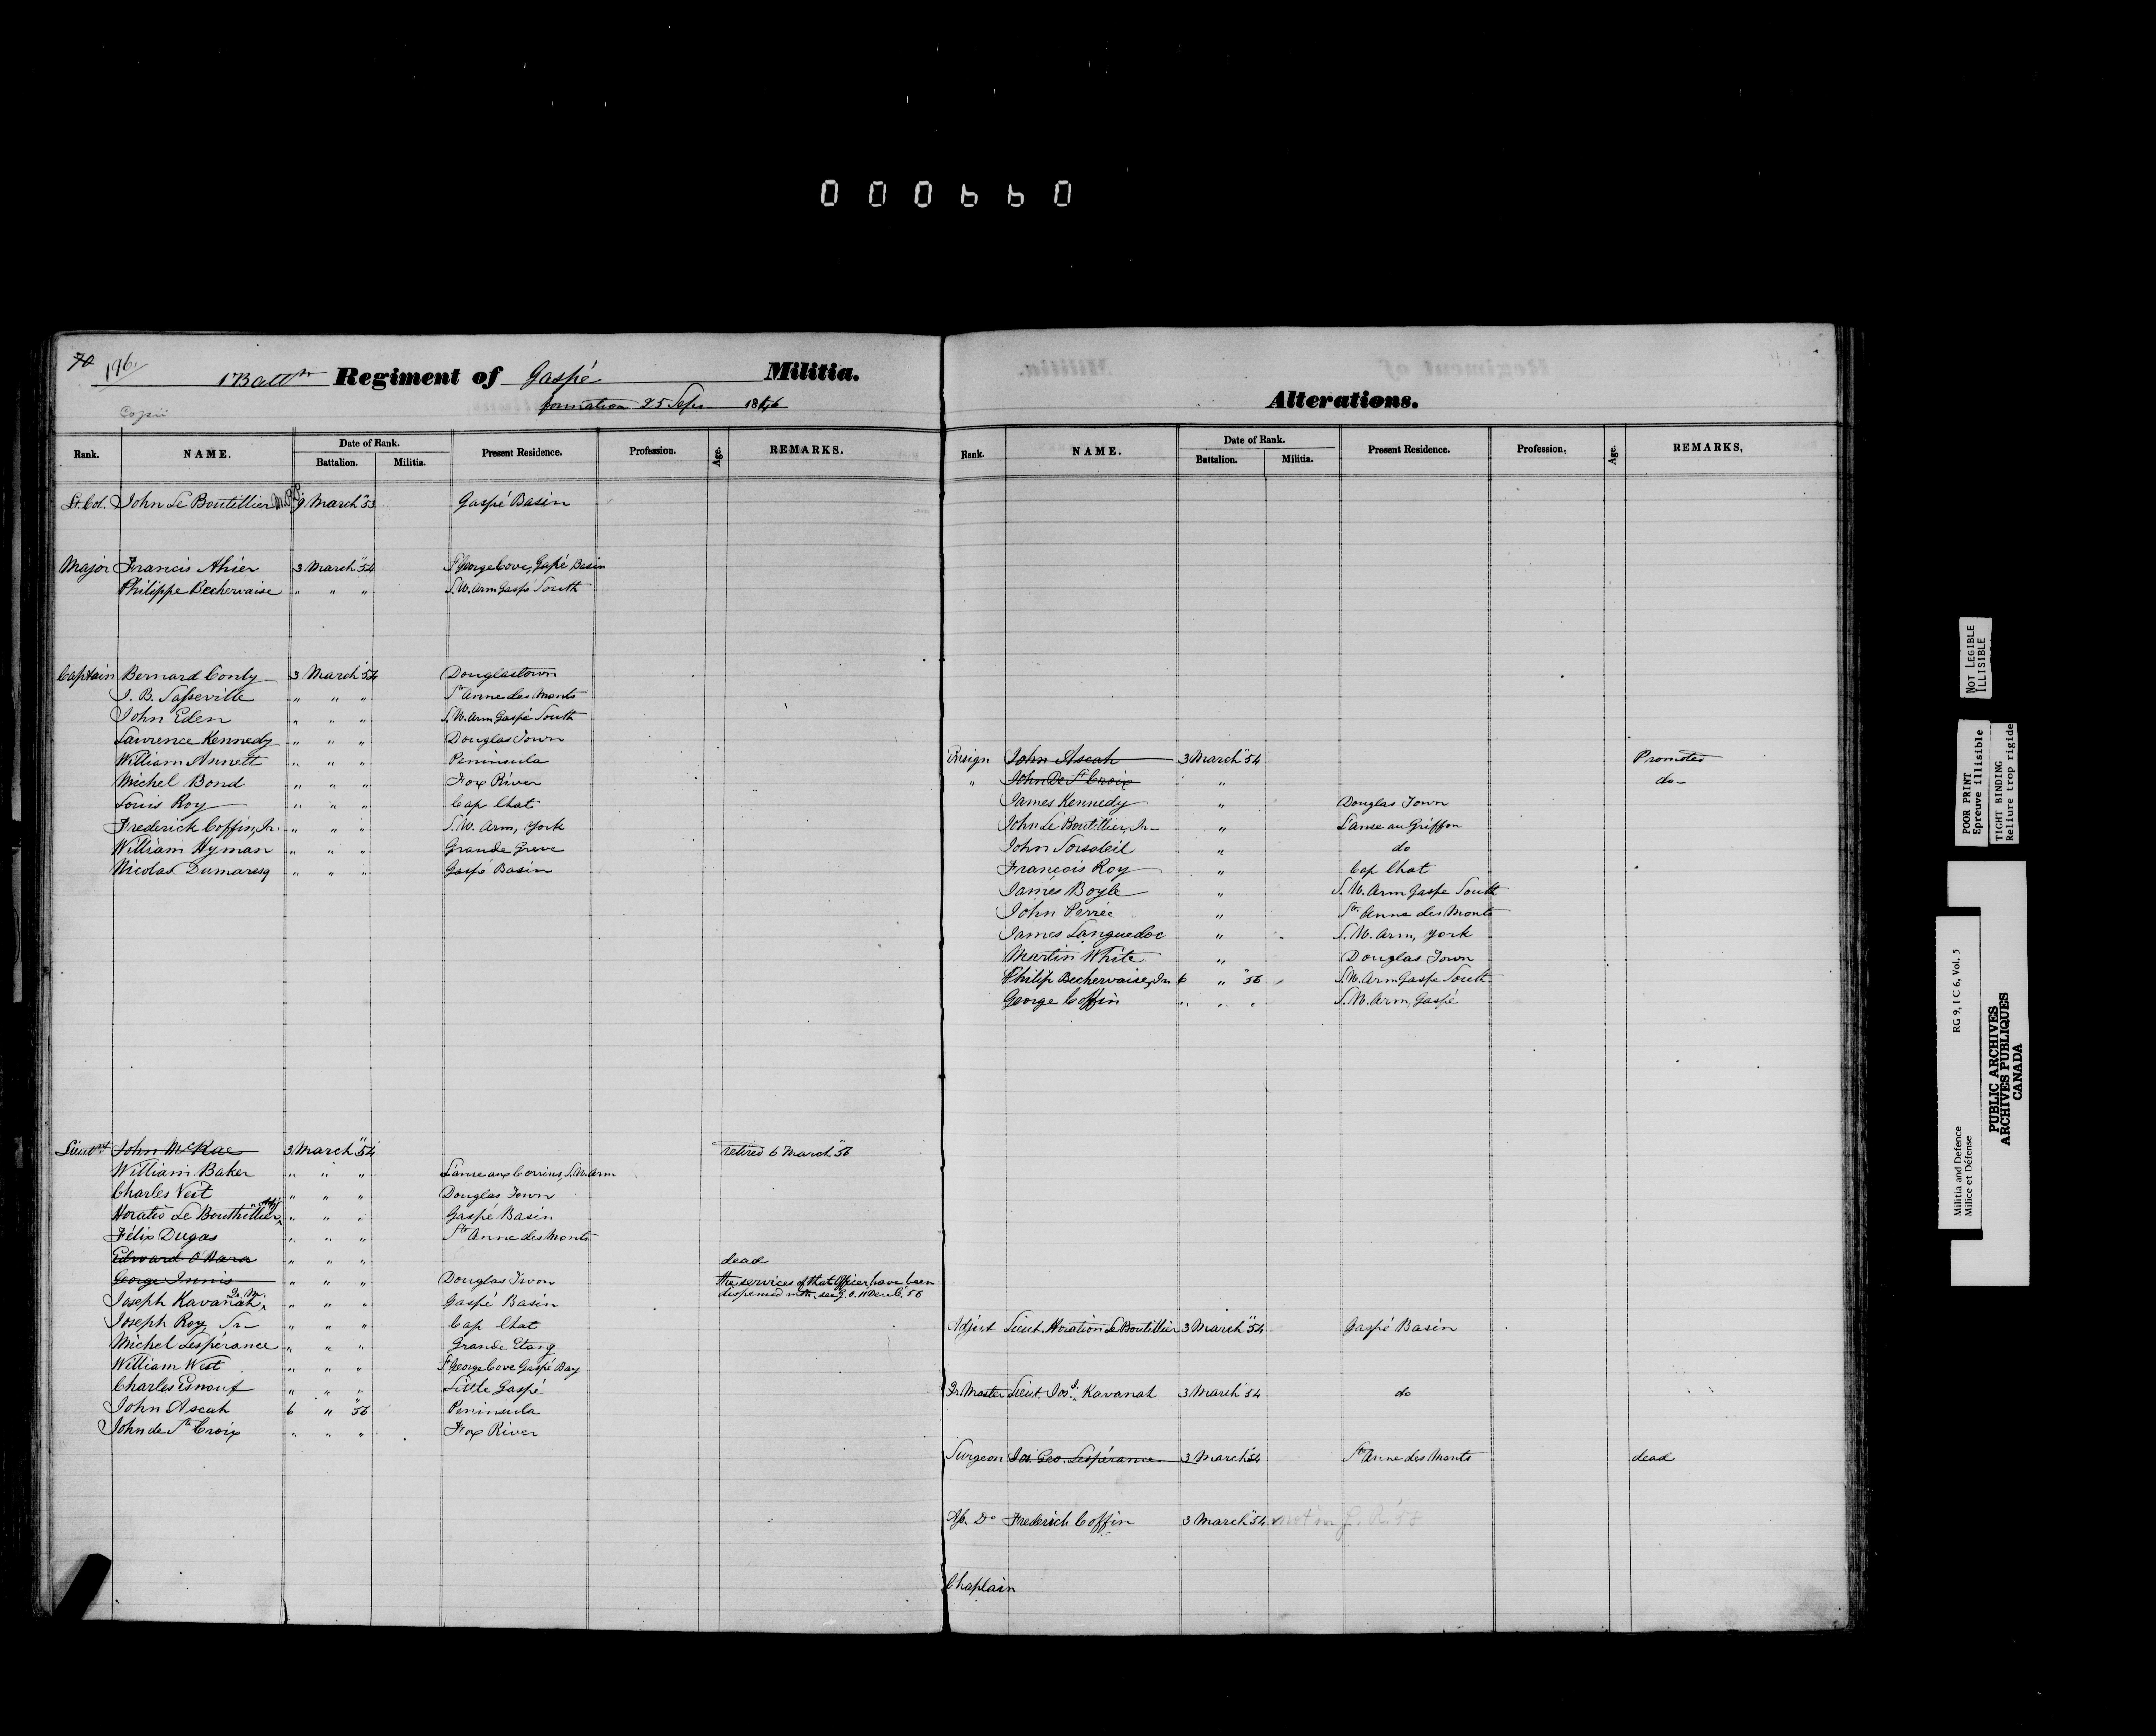 000660
70 196.
1 Battn Regiment of Gaspé Militia.
formation 25 Sepr 1846
Copié
Rank. NAME. Date of Rank. Present Residence. Profession. Age. REMARKS.
Battalion. Militia.
Lt. Col. John Le Boutillier M.P.P. 9 March "53 Gaspé Basin
Major Francis Ahier 3 March "54 St George Cove, Gaspé Basin
Philippe Bechervaise " " " S.W. Arm Gaspé South
Captain Bernard Conly 3 March "54 Douglastown
J. B. Sasseville " " " Ste Anne des Monts
John Eden " " " S.W. Arm Gaspé South
Lawrence Kennedy " " " Douglas Town
William Annett " " " Peninsula
Michel Bond " " " Fox River
Louis Roy " " " Cap Chat
Frederick Coffin, Jr. " " " S.W. Arm, York
William Hyman " " " Grande Greve
Nicolas Dumaresq " " " Gaspé Basin
Lieutnt John McRae 3 March "54 retired 6 March "56
William Baker " " " L'anse aux Cousins, S.W. Arm
Charles Veit " " " Douglas Town
Horatio Le Bouthillier, Adjt " " " Gaspé Basin
Félix Dugas " " " Ste Anne des Monts
Edward O'Hara " " " dead
George Innis " " " Douglas Town the services of that Officer have been
dispensed with, see G.O. 11 Decr '56
Joseph Kavanah, Qr. Mr. " " " Gaspé Basin
Joseph Roy, Sr " " " Cap Chat
Michel Lespérance " " " Grande Etang
William West " " " St George Cove Gaspé Bay
Charles Esnouf " " " Little Gaspé
John Ascah 6 " "56 Peninsula
John de Ste Croix " " " Fox River
Alterations.
Rank. NAME. Date of Rank. Present Residence. Profession, Age. REMARKS,
Battalion. Militia.
Ensign John Ascah 3 March "54 Promoted
" John De St Croix " do
James Kennedy " Douglas Town
John Le Boutillier, Jr " L'anse au Griffon
John Sorsoleil " do
François Roy " Cap Chat
James Boyle " S.W. Arm Gaspe South
John Perrée " Ste Anne des Monts
James Languedoc " S.W. Arm, York
Martin White " Douglas Town
Philip Bechervaise, Jr. 6 " "56 S.W. Arm Gaspe South
George Coffin " " " S.W. Arm, Gaspé
Adjut Lieut. Horation Le Boutillier 3 March "54 Gaspé Basin
Qr. Master Lieut. Jos. J. Kavanah 3 March "54 do
Surgeon Jos. Geo. Lespérance 3 March "54 Ste Anne des Monts dead
As. Do Frederich Coffin 3 March "54 not in L. R. '58
Chaplain
NOT LEGIBLE
ILLISIBLE
POOR PRINT
Epreuve illisible
TIGHT BINDING
Reliure trop rigide
Militia and Defence RG 9, I C 6, Vol. 5
Milice et Défense
PUBLIC ARCHIVES
ARCHIVES PUBLIQUES
CANADA